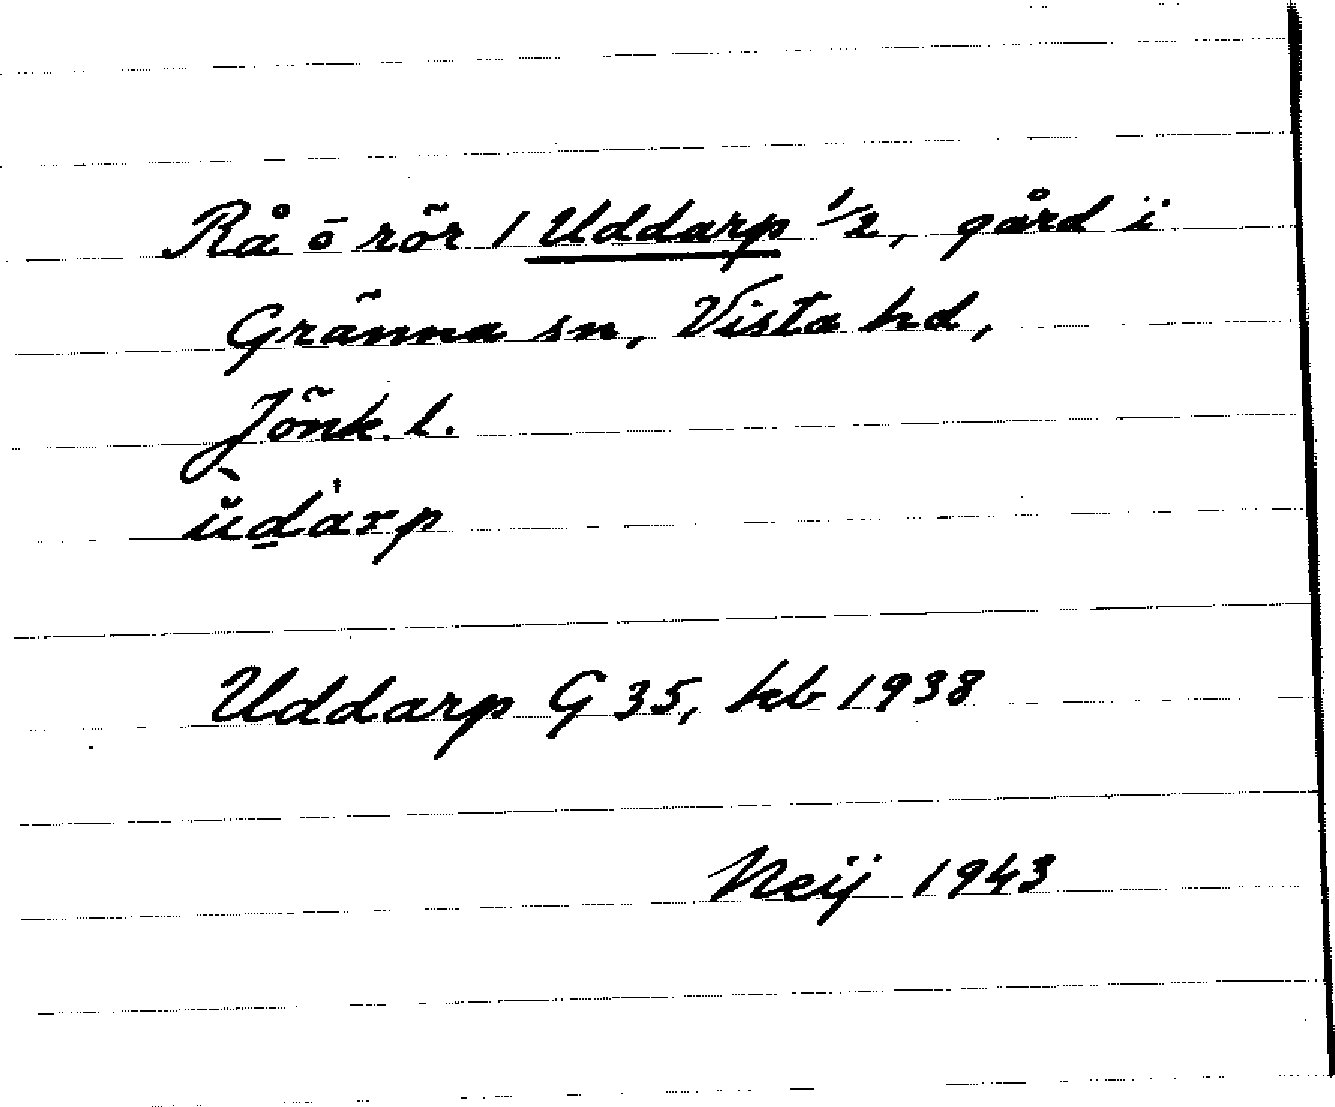 Rå ō rör 1 Uddarp 1/2, gård i
Gränna sn, Vista hd,
Jönk. l.
ùdarp
Uddarp G 35, kb 1938
Neij 1943